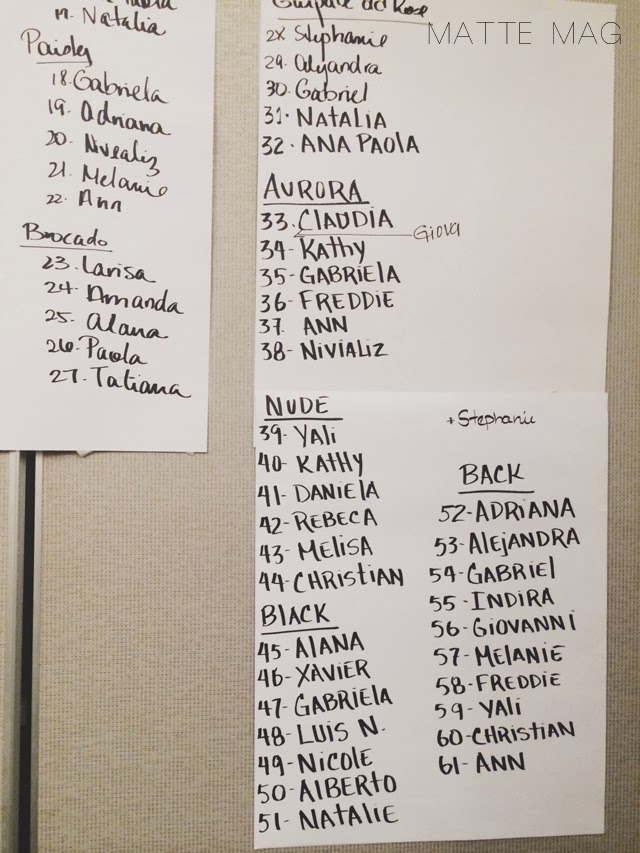 17. Natalia
Paisley
18. Gabriela
19. Adriana
20. Nivealiz
21. Melanie
22. Ann
Brocado
23. Larisa
24. Amanda
25. Alana
26. Paola
27. Tatiana
28 Stephanie
29. Alejandra
30. Gabriel
31. NATALIA
32. ANA PAOLA
AURORA
33. CLAUDIA
Giova
34- Kathy
35- GABRIELA
36- FREDDIE
37. ANN
38- NIVIALIZ
NUDE
39- Yali
40- KATHY
41- DANIELA
42- REBECA
43- MELISA
44- CHRISTIAN
BLACK
45- ALANA
46- XAVIER
47- GABRIELA
48- LUIS N.
49- NICOLE
50- ALBERTO
51- NATALIE
+ Stephanie
BACK
52- ADRIANA
53- ALEJANDRA
54- GABRIEL
55- INDIRA
56- GIOVANNI
57- MELANIE
58- FREDDIE
59- YALI
60- CHRISTIAN
61- ANN
MATTE MAG